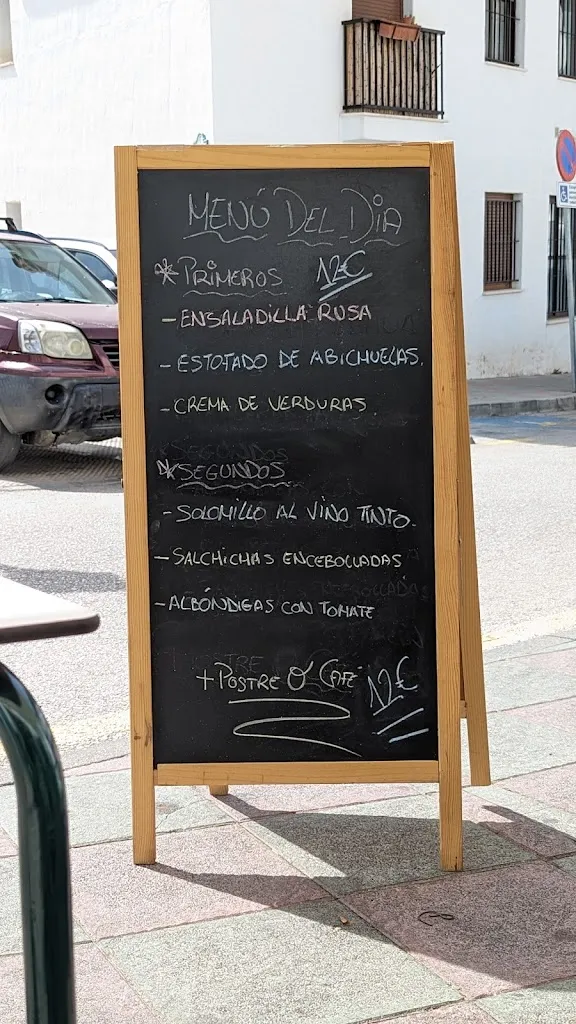 MENÚ DEL DÍA
*PRIMEROS 12€
- ENSALADILLA RUSA
- ESTOFADO DE ABICHUELAS.
- CREMA DE VERDURAS.
*SEGUNDOS
- SOLOMILLO AL VINO TINTO.
- SALCHICHAS ENCEBOLLADAS
- ALBÓNDIGAS CON TOMATE
+ POSTRE Ó CAFÉ 12€